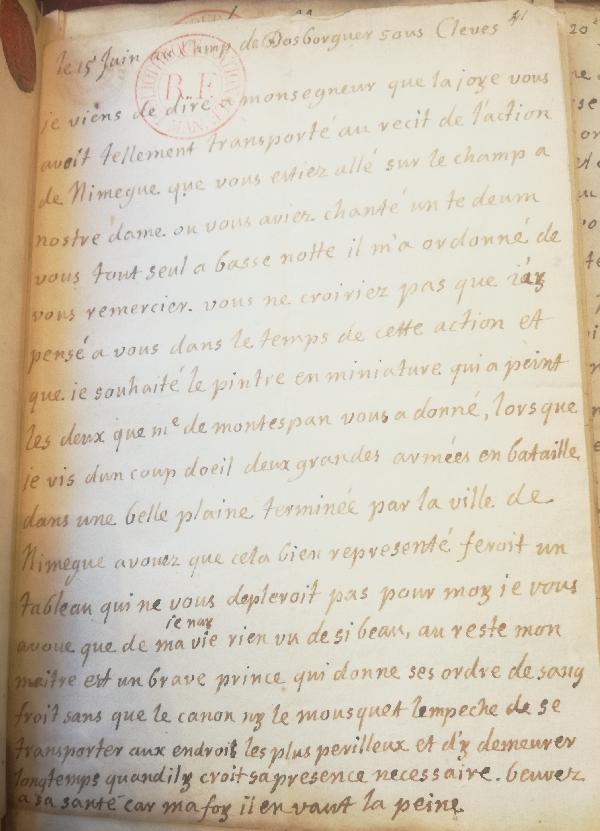 41
le 15 Juin au Camp de Dosborguer sous Cleves
je viens de dire a monsegneur que la joye vous
avoit tellement transporté au recit de l'action
de Nimegue que vous estiez allé sur le champ a
nostre dame ou vous aviez chanté un te deum
vous tout seul a basse notte il m'a ordonné de
vous remercier. vous ne croiriez pas que i'ay
pensé a vous dans le temps de cette action et
que ie souhaité le pintre en miniature qui a peint
les deux que me de montespan vous a donné, lors que
je vis dun coup doeil deux grandes armées en bataille
dans une belle plaine terminée par la ville de
Nimegue avouez que cela bien representé feroit un
tableau qui ne vous depleroit pas pour moy je vous
avoue que de ma vie ie nay rien vu de si beau, au reste mon
maitre est un brave prince qui donne ses ordre de sang
froit sans que le canon ny le mousquet lempeche de se
transporter aux endroit les plus perilleux et d'y demeurer
longtemps quand ily croit sa presence necessaire. beuvez
a sa santé car ma foy il en vaut la peine
R.F.